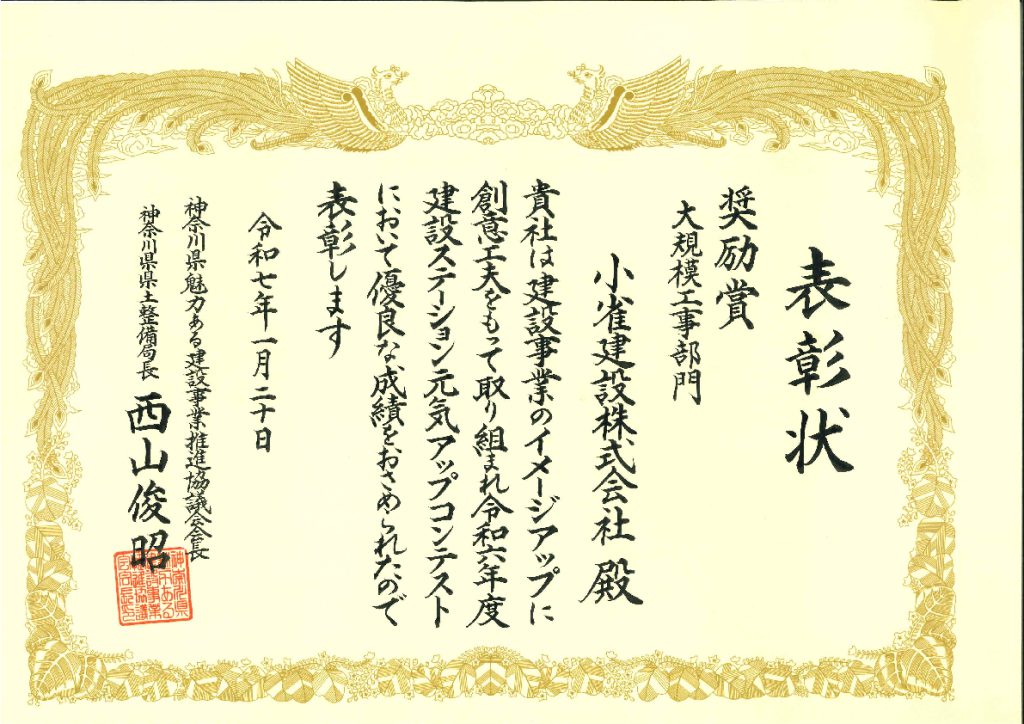 表彰状
奨励賞
大規模工事部門
小雀建設株式会社 殿
貴社は建設事業のイメージアップに
創意工夫をもって取り組まれ令和六年度
建設ステーション元気アップコンテスト
において優良な成績をおさめられたので
表彰します
令和七年一月二十日
神奈川県魅力ある建設事業推進協議会会長
神奈川県県土整備局長 西山俊昭